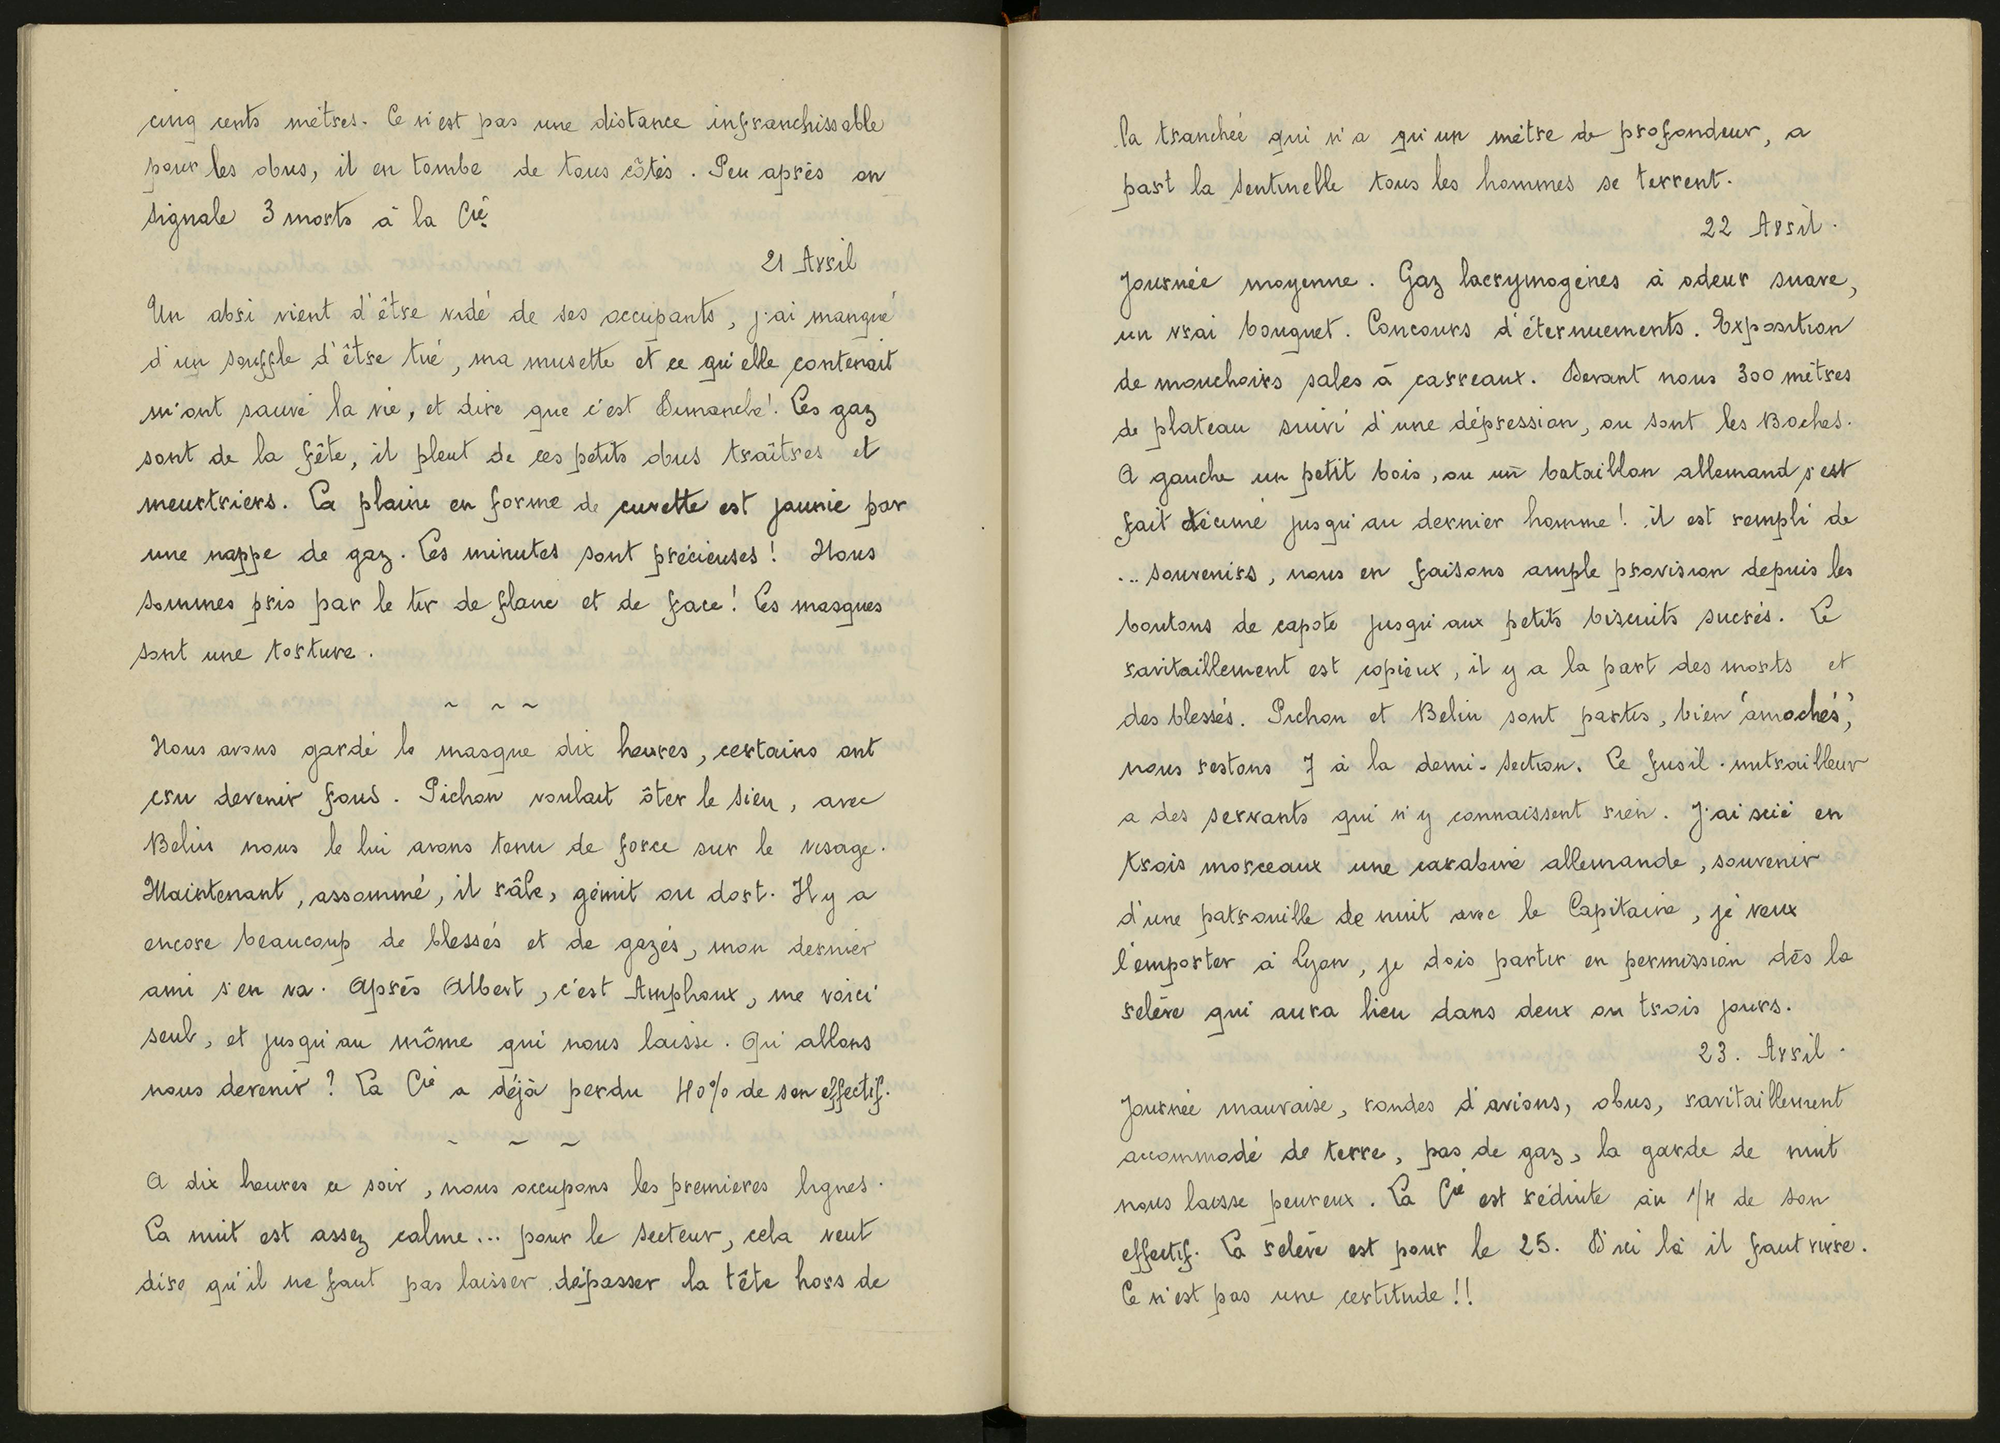 cinq cents mètres. Ce n'est pas une distance infranchissable
pour les obus, il en tombe de tous côtés. Peu après on
signale 3 morts à la Cie.
21 Avril
Un abri vient d'être vidé de ses occupants, j'ai manqué
d'un souffle d'être tué, ma musette et ce qu'elle contenait
m'ont sauvé la vie, et dire que c'est Dimanche! Les gaz
sont de la fête, il pleut de ces petits obus traîtres et
meurtriers. La plaine en forme de cuvette est jaunie par
une nappe de gaz. Les minutes sont précieuses! Nous
sommes pris par le tir de flanc et de face! Les masques
sont une torture.
~ ~ ~
Nous avons gardé le masque dix heures, certains ont
cru devenir fous. Pichon voulait ôter le sien, avec
Belin nous le lui avons tenu de force sur le visage.
Maintenant, assommé, il râle, gémit ou dort. Il y a
encore beaucoup de blessés et de gazés, mon dernier
ami s'en va. Après Albert, c'est Amphoux, me voici
seul, et jusqu'au môme qui nous laisse. Qu'allons
nous devenir? La Cie a déjà perdu 40% de son effectif.
~ ~ ~
A dix heures ce soir, nous occupons les premières lignes.
La nuit est assez calme... pour le secteur, cela veut
dire qu'il ne faut pas laisser dépasser la tête hors de
la tranchée qui n'a qu'un mètre de profondeur, a
part la sentinelle tous les hommes se terrent.
22 Avril.
Journée moyenne. Gaz lacrymogènes à odeur suave,
un vrai bouquet. Concours d'éternuements. Exposition
de mouchoirs sales à carreaux. Devant nous 300 mètres
de plateau suivi d'une dépression, ou sont les Boches.
A gauche un petit bois, ou un bataillon allemand s'est
fait décimé jusqu'au dernier homme! il est rempli de
... souvenirs, nous en faisons ample provision depuis les
boutons de capote jusqu'aux petits biscuits sucrés. Le
ravitaillement est copieux, il y a la part des morts et
des blessés. Pichon et Belin sont partis, bien "amochés",
nous restons 7 à la demi-section. Le fusil-mitrailleur
a des servants qui n'y connaissent rien. J'ai scié en
trois morceaux une carabine allemande, souvenir
d'une patrouille de nuit avec le Capitaine, je veux
l'emporter à Lyon, je dois partir en permission dès la
relève qui aura lieu dans deux ou trois jours.
23. Avril.
Journée mauvaise, rondes d'avions, obus, ravitaillement
accommodé de terre, pas de gaz, la garde de nuit
nous laisse peureux. La Cie est réduite au 1/4 de son
effectif. La relève est pour le 25. D'ici là il faut vivre.
Ce n'est pas une certitude!!